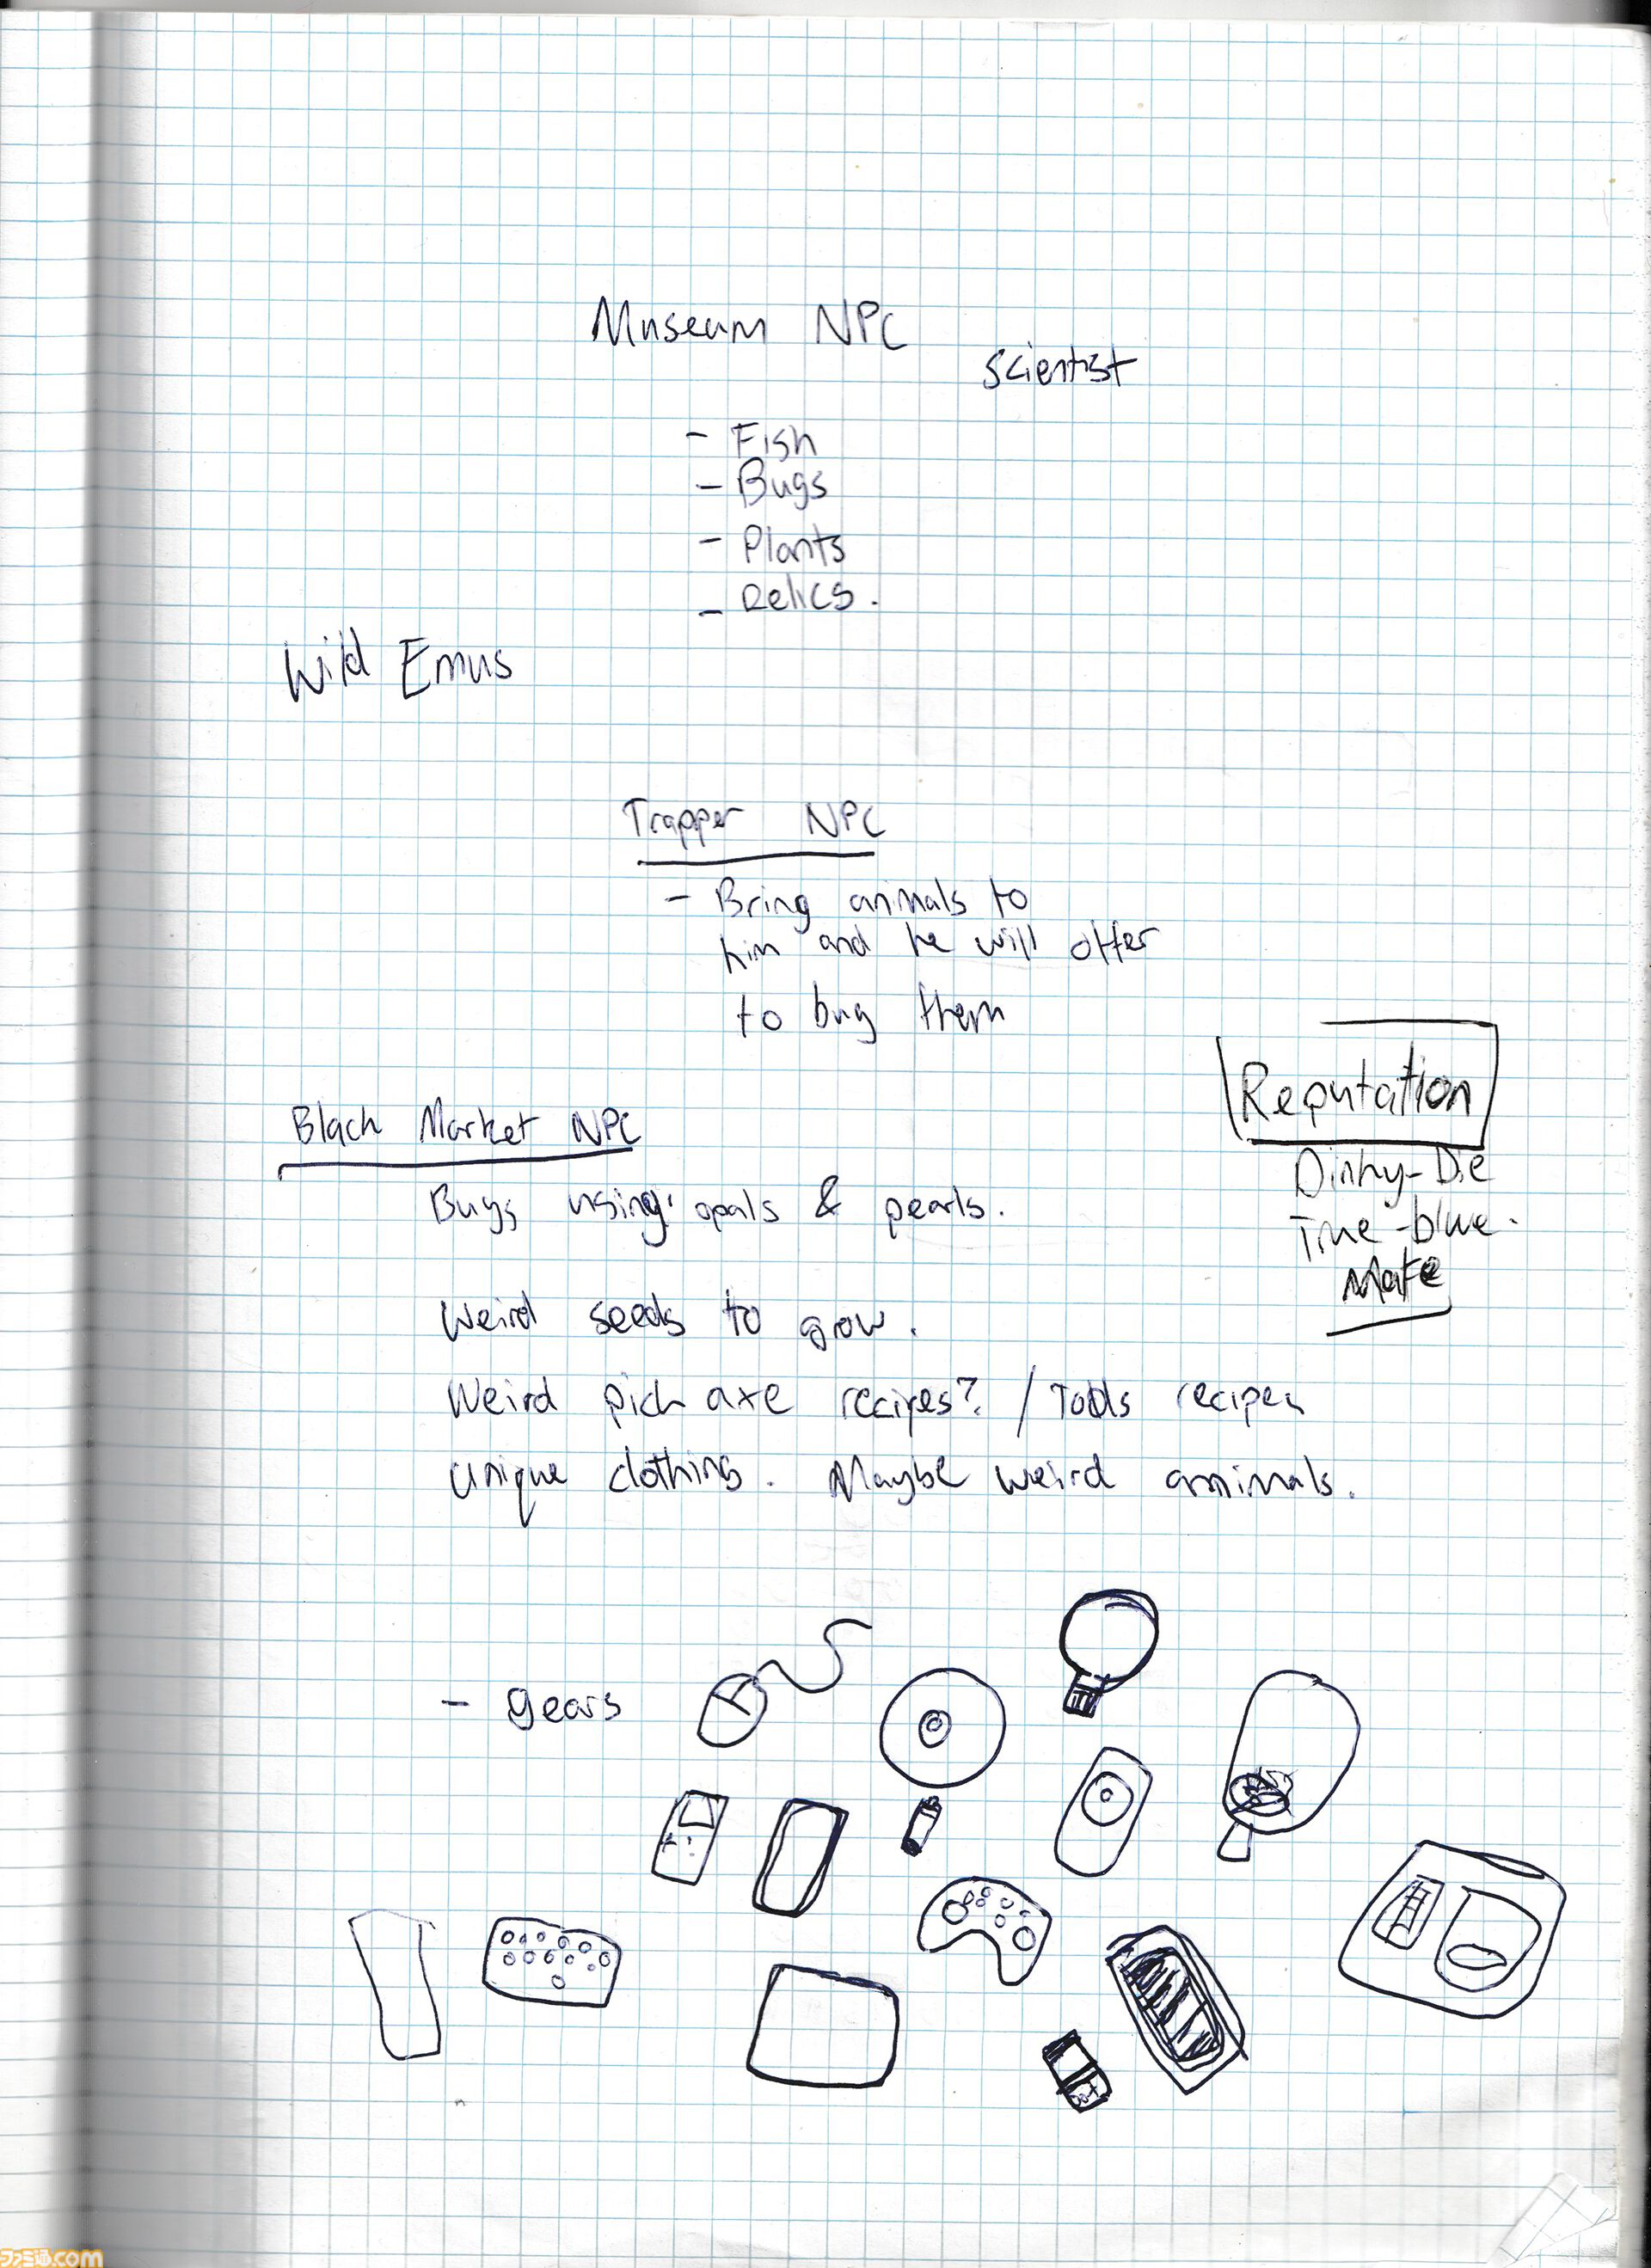 Museum NPC
scientist
- Fish
- Bugs
- Plants
- Relics.
Wild Emus
Trapper NPC
- Bring animals to
him and he will offer
to buy them
Reputation
Dinky-Die
True-blue.
Mate
Black Market NPC
Buys using: opals & pearls.
Weird seeds to grow.
Weird pick axe recipes? / Tools recipes
Unique clothing. Maybe weird animals.
- gears
ファミ通.com